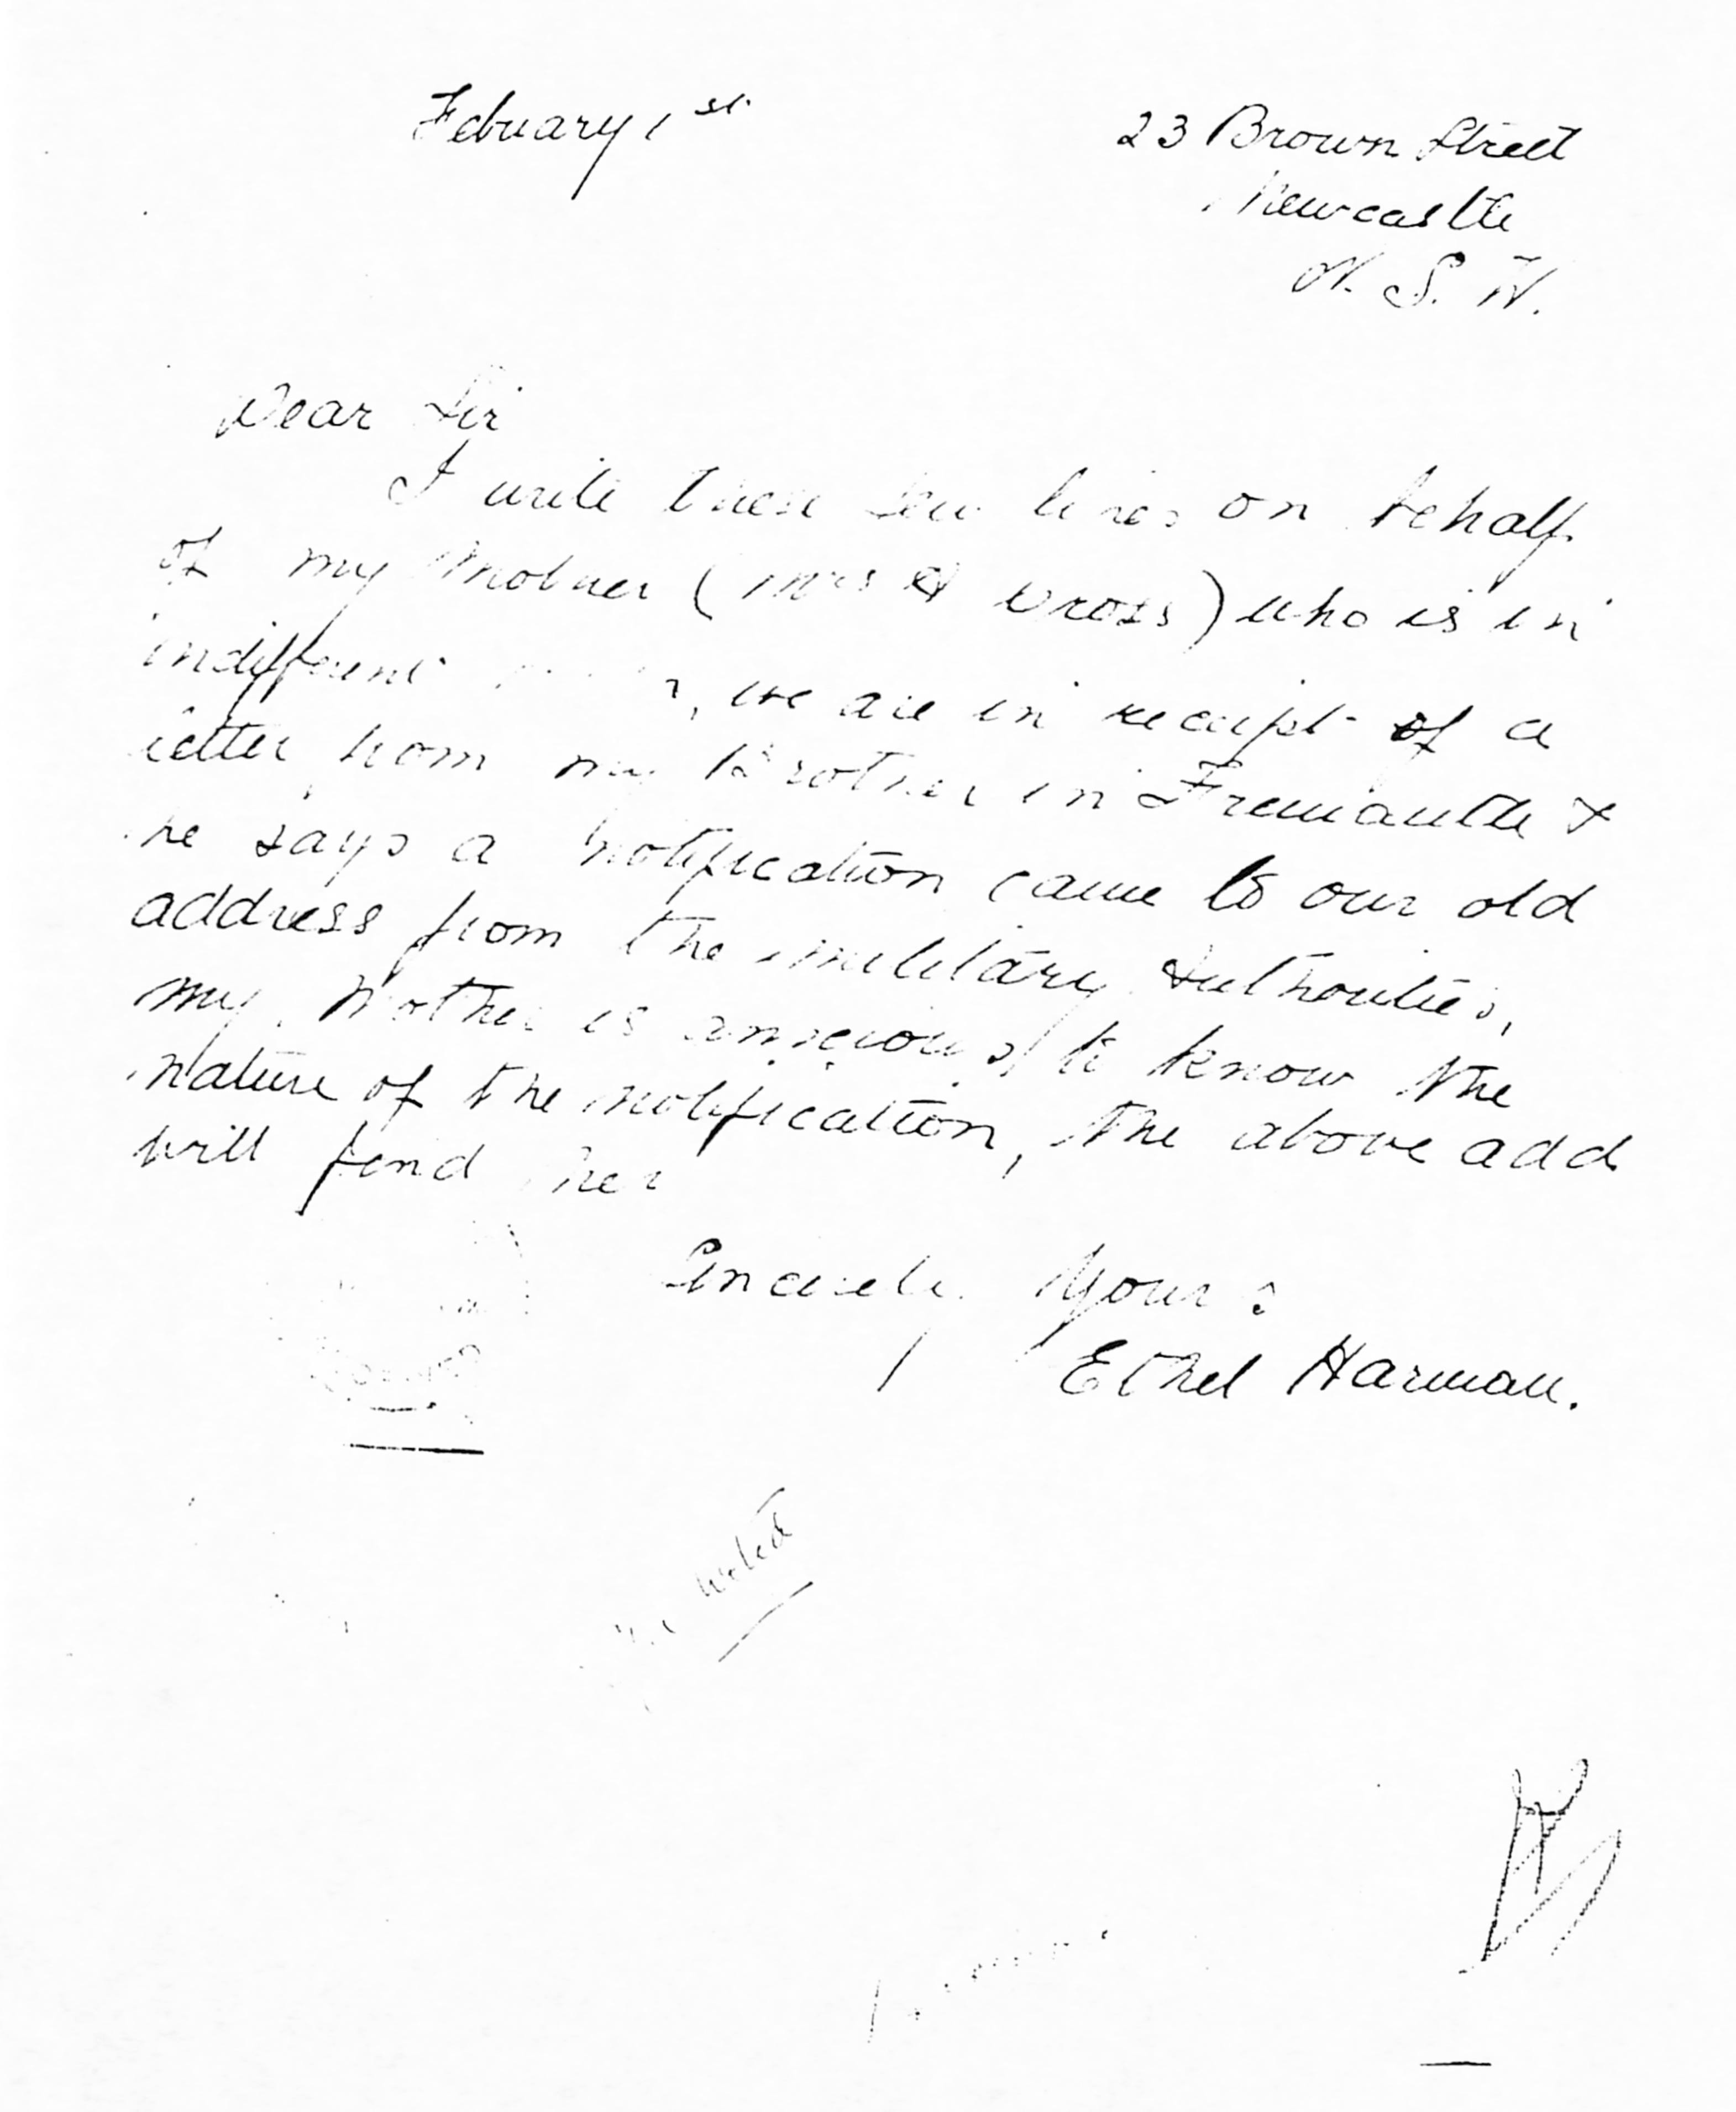 Febuary 1st
23 Brown Street
Newcastle
N. S. W.
Dear Sir
I write these few lines on behalf
of my Mother (Mrs Dross) who is in
indifferent , we are in receipt of a
letter from my Brother in Fremantle &
he says a notification came to our old
address from the military Authorities,
my Mother is anxious to know the
nature of the notification, the above add
will find her
Sincerely Yours
Ethel Harman.